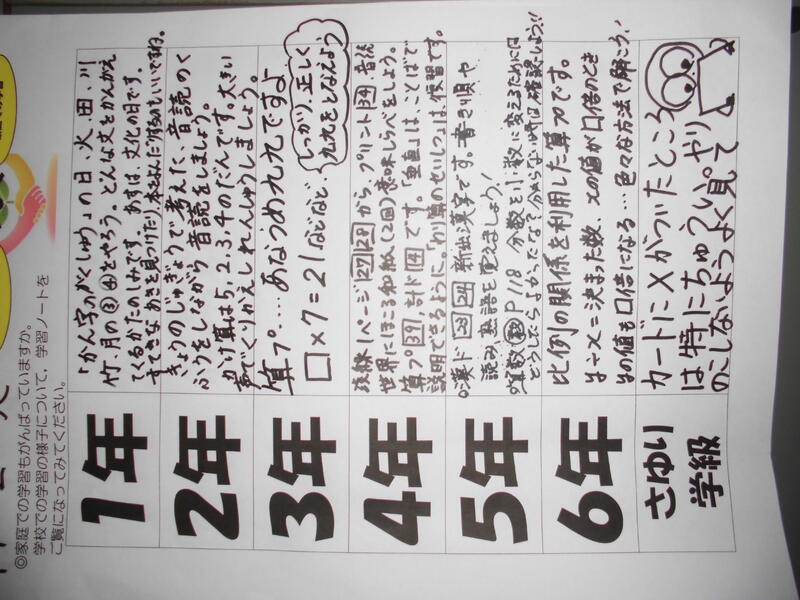 ◎家庭での学習もがんばっていますか。
学校での学習の様子について、学習ノートを
ご覧になってみてください。
1年
「かん字のがくしゅう」の日、火、田、川
竹、月の③④をやろう。どんな文をかんがえ
てくるかたのしみです。あすは、文化の日です。
すてきなあきを見つけたり、本をよんだりするのもいいですね。
2年
きょうのじゅぎょうで考えた、音読のく
ふうをしながら音読をしましょう。
かけ算は5,2,3,4のだんです。大きい
声でくりかえしれんしゅうしましょう。
3年
算プ…あなうめ九九ですよ
□×7=21などなど
しっかり、正しく
九九をとなえよう
4年
1ページ27 28から、プリント34 音読
世界にほこる和紙(2回)意味しらべをしよう。
算プ39、計ド4です。「垂直」は、ことばで
説明できるように。「わり算のせいしつ」は復習です。
5年
◎漢ド23 24 新出漢字です。書き順や
読み、熟語を覚えましょう!
P118 分数を小数に変えるためには
どうしたらよかったかな?分からない時は確認しよう!!
6年
比例の関係を利用した算プです。
y÷x=決まった数、xの値が□倍のとき
yの値も□倍になる…色々な方法で解こう!
さゆり
学級
カードに×がついたところ
は特にちゅうい。やり
のこしないようよく見て